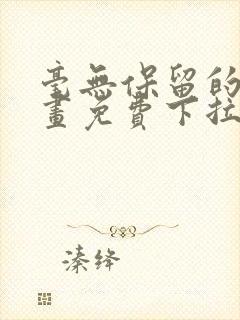 毫無保留的
畫免費下拉
溱绛